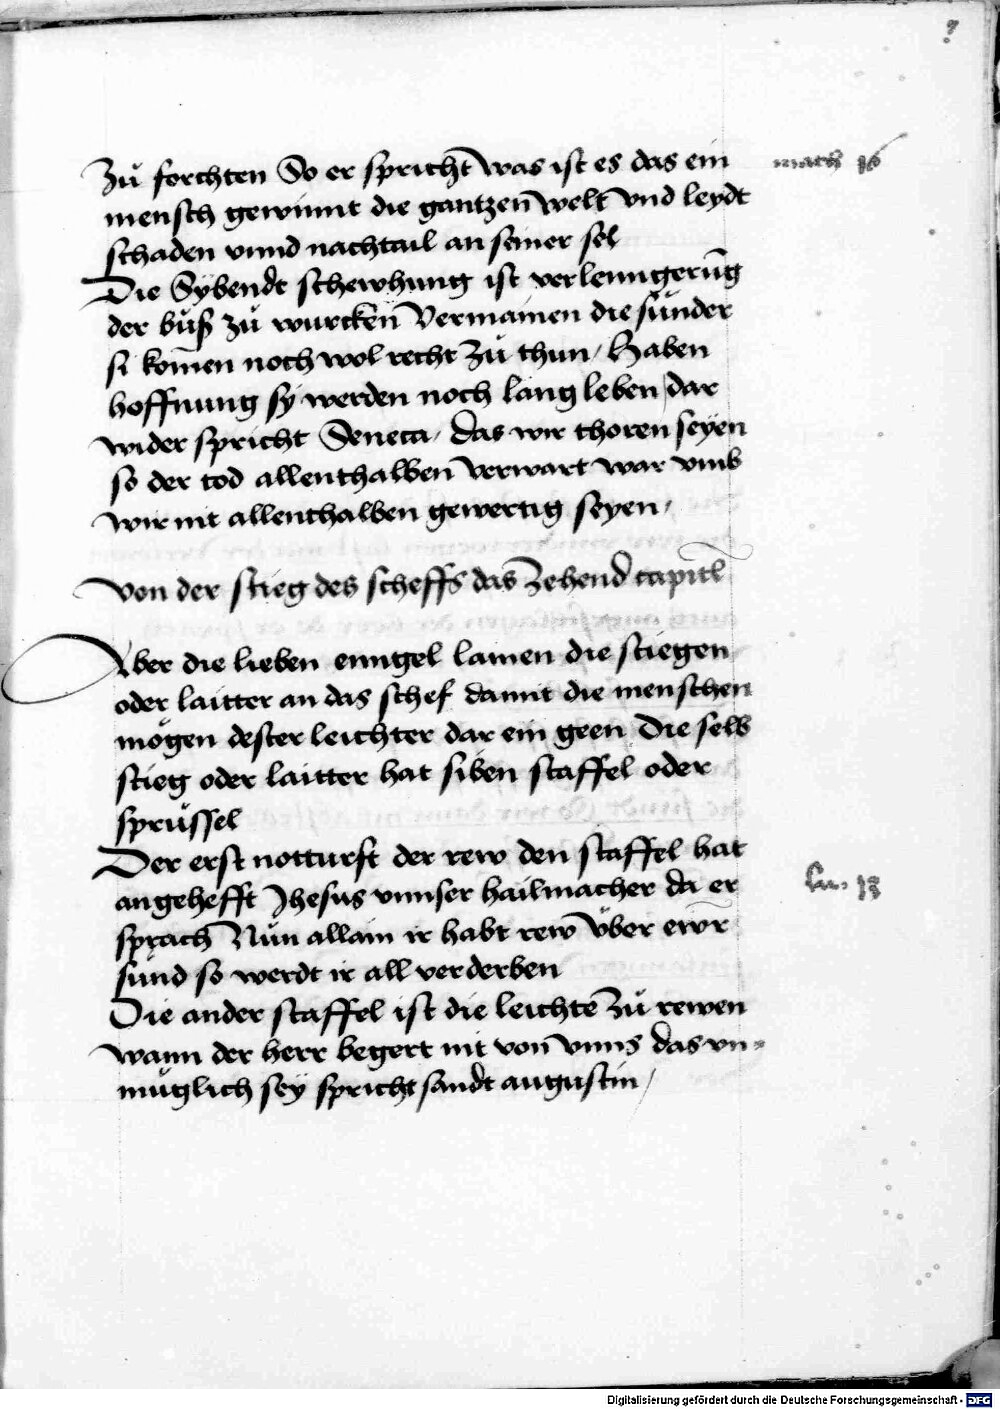 9
Zů forchten So er spricht was ist es das ein
math 16
mensch gewinnt die gantzen̄ welt vnd leydt
schaden vnnd nachtail an seiner sel
Die Sybendt schewhung ist verlenngerūg
der bůß zů wurcken̄ Vermainen die sünder
si kom̄en noch wol recht zů thun / Haben
hoffnung sÿ werden noch lang leben / dar
wider spricht Seneca / das wir thoren seyen
so der tod allenthalben verwart war vmb
wir nit allenthalben gewertig seyen /
von der stieg des scheffs das zehend capitl
Aber die lieben enngel lainen die stiegen
oder laitter an das schef damit die menschen
mögen dester leichter dar ein geen Die selb
stieg oder laitter hat siben staffel oder
sprüssel
Der erst notturft der rew den staffel hat
angehefft Jhesus vnnser hailmacher da er
lu. 13
sprach Nůn allain ir habt rew über ewr
sünd so werdt ir all verderben
Die ander staffel ist die leichte zů rewen
wann der herr begert nit von vnns das vn-
müglich sey spricht sandt augustin /
Digitalisierung gefördert durch die Deutsche Forschungsgemeinschaft - DFG